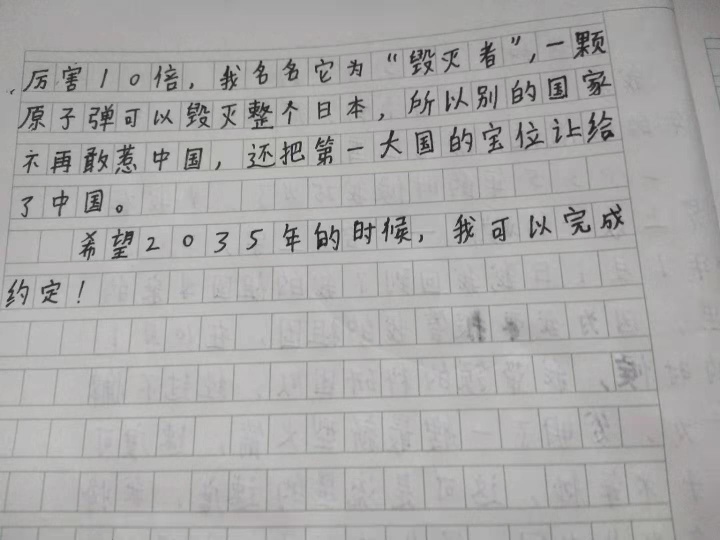 厉害10倍，我名名它为“毁灭者”，一颗
原子弹可以毁灭整个日本，所以别的国家
不再敢惹中国，还把第一大国的宝位让给
了中国。
希望2035年的时候，我可以完成
约定！